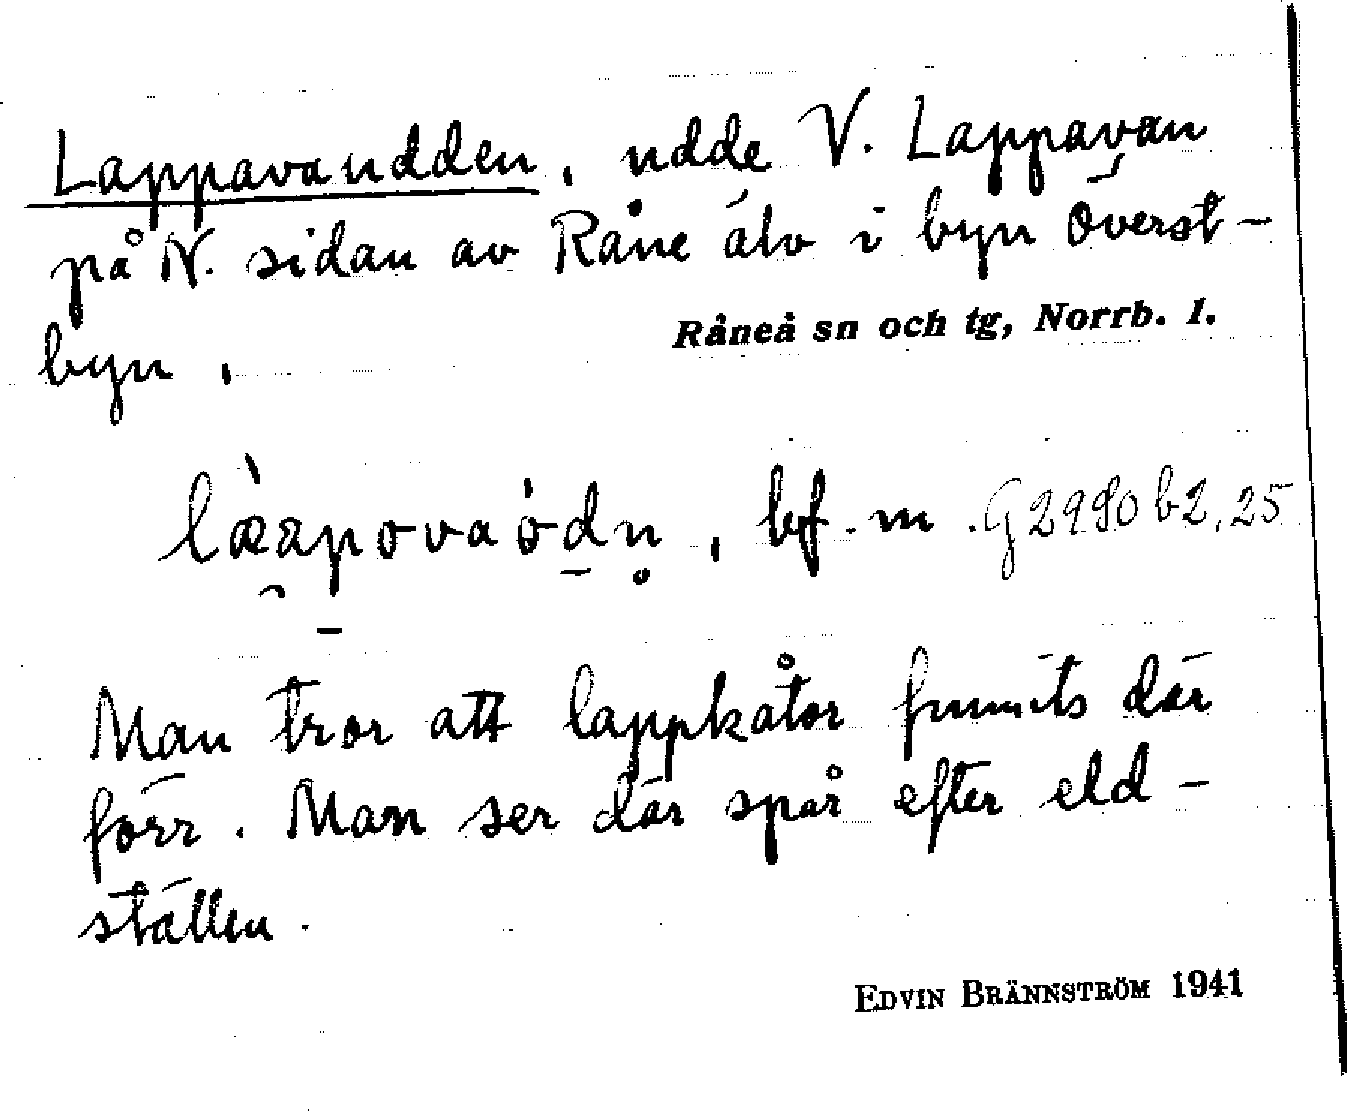 Lappavaudden, udde V. Lappavan
på N. sidan av Råne älv i byn Överst-
byn.
Råneå sn och tg, Norrb. l.
bf. m. G2980 b2, 25
Man tror att lappkåtor funnits där
förr. Man ser där spår efter eld-
ställen.
EDVIN BRÄNNSTRÖM 1941